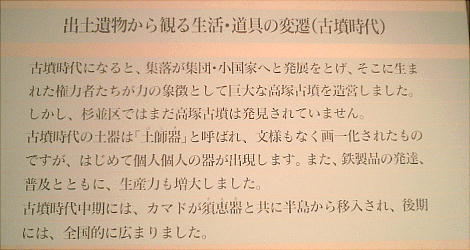 出土遺物から観る生活・道具の変遷(古墳時代)
古墳時代になると、集落が集団・小国家へと発展をとげ、そこに生ま
れた権力者たちが力の象徴として巨大な高塚古墳を造営しました。
しかし、杉並区ではまだ高塚古墳は発見されていません。
古墳時代の土器は「土師器」と呼ばれ、文様もなく画一化されたもの
ですが、はじめて個人個人の器が出現します。また、鉄製品の発達、
普及とともに、生産力も増大しました。
古墳時代中期には、カマドが須恵器と共に半島から移入され、後期
には、全国的に広まりました。